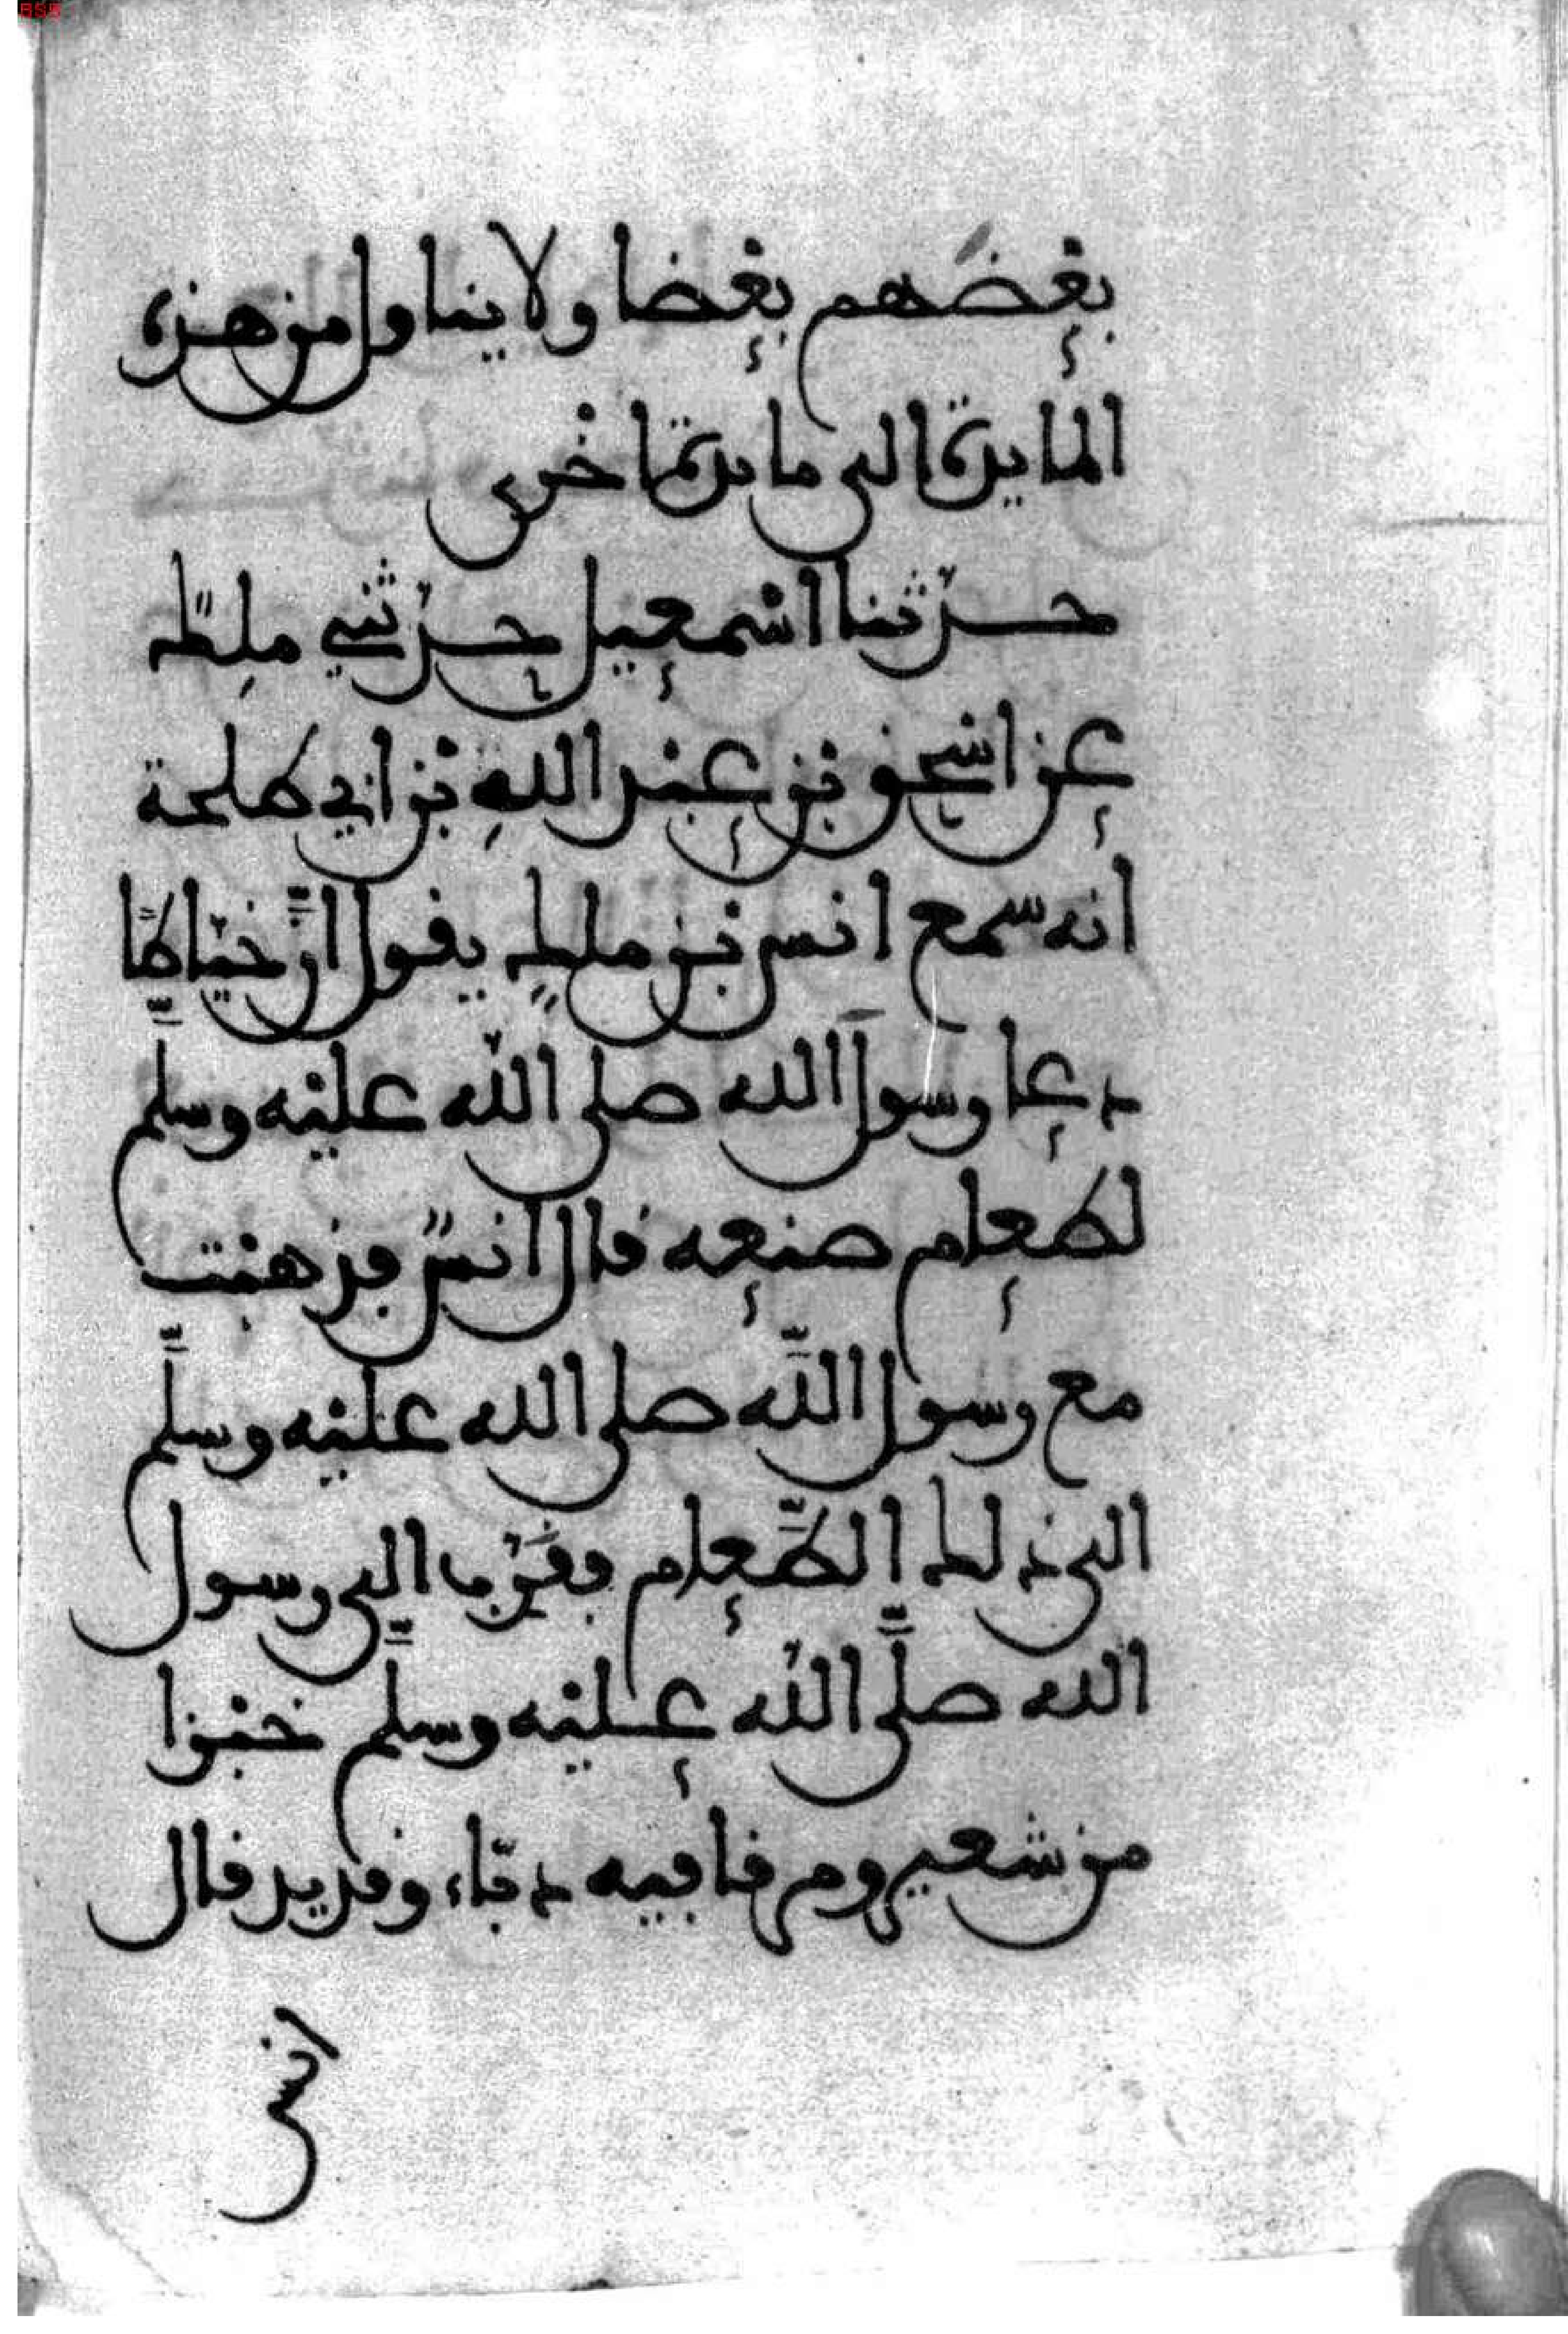 بعضهم بعضا ولا يناول من هذه
المايدة الى مايدة اخرى
حدثنا اسمعيل حدثني ملك
عن اسحق بن عبد الله بن ابي طلحة
انه سمع انس بن ملك يقول ان خياطا
دعا رسول الله صلى الله عليه وسلم
لطعام صنعه قال انس فذهبت
مع رسول الله صلى الله عليه وسلم
الى ذلك الطعام فقرب الى رسول
الله صلى الله عليه وسلم خبزا
من شعير ومرقا فيه دباء وقديد قال
انس